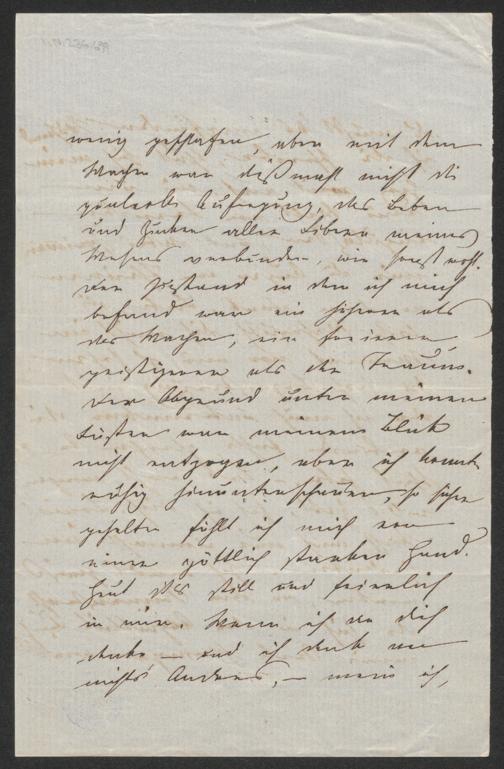 I.N. 236.699
wenig geschlafen, aber mit dem
Wachen war dißmahl nicht die
Aufregung, das Beben
und Zucken aller Fibern meines
Wesens verbunden, wie sonst wohl.
Der Zustand in dem ich mich
befand war ein höherer als
des Wachens, ein freierer
geistigerer als der Traums.
Der Abgrund unter meinen
Füßen war meinem Blick
nicht entzogen, aber ich konnte
ruhig hinunterschauen, so sicher
gehalten fühlt ich mich von
einer göttlich starken Hand.
Heut ist's still und feierlich
in mir. Wenn ich an dich
denke – und ich denk an
nichts Anders, – mein ich,